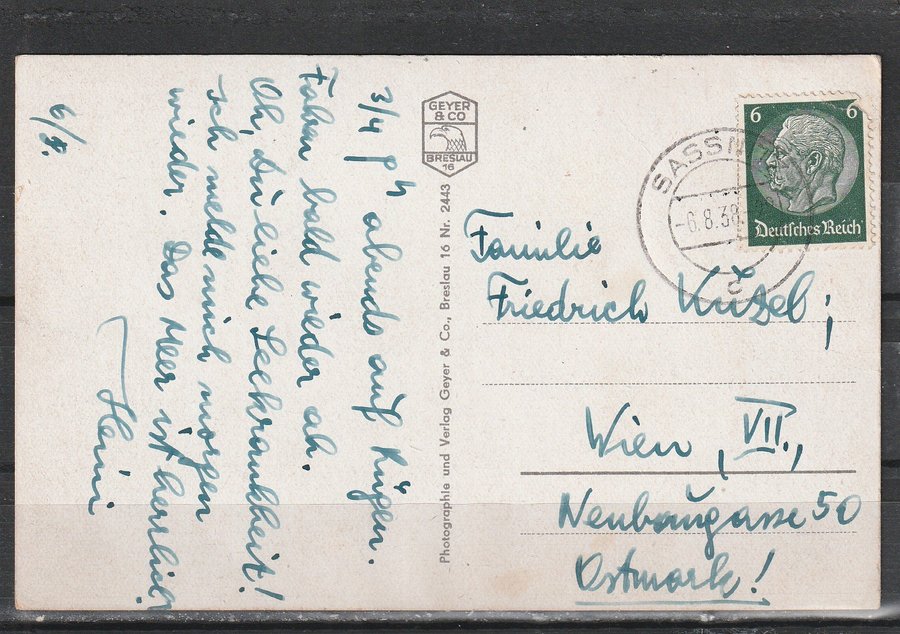 6/8.
3/4 9 h abends auf Rügen.
Fahren bald wieder ab.
Oh, du liebe Seekrankheit!
Ich melde mich morgen
wieder. Das Meer ist herrlich.
Heini
GEYER
& CO
BRESLAU
16
Photographie und Verlag Geyer & Co., Breslau 16 Nr. 2443
6 6
Deutsches Reich
SASSN
-6.8.38.
c
Familie
Friedrich Kužel,
Wien, VII.,
Neubaugasse 50
Ostmark!